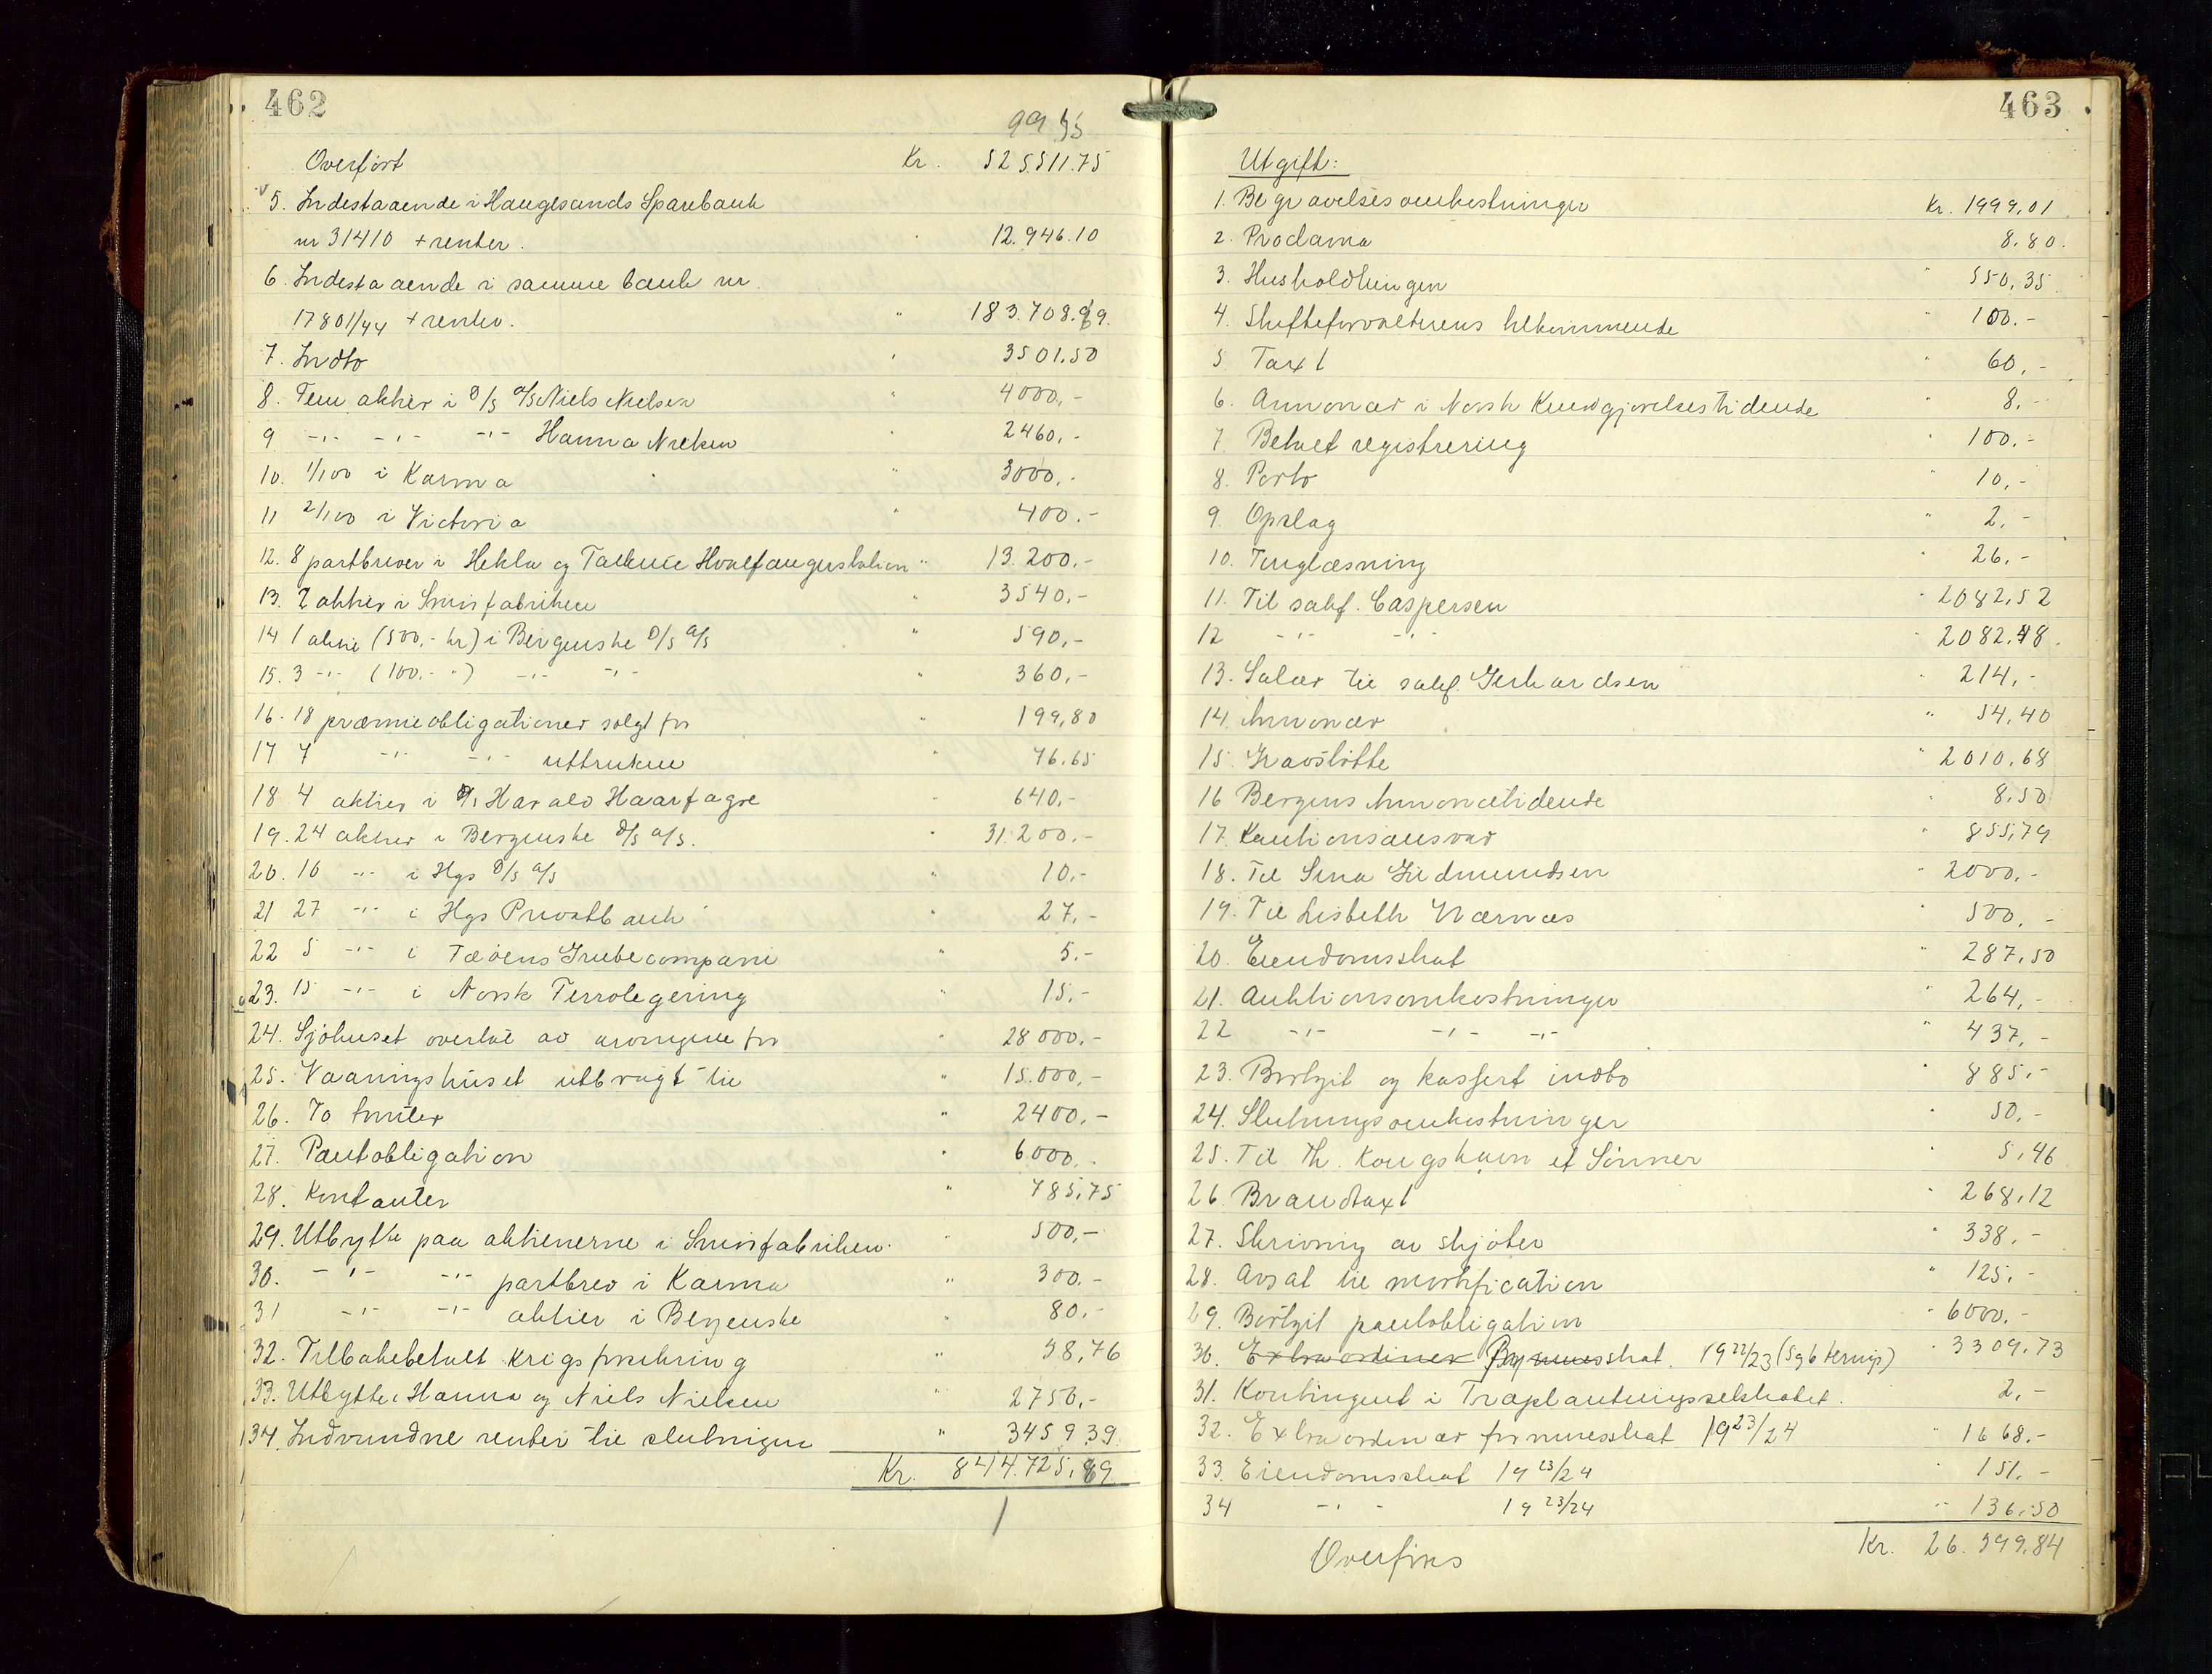 462
99 75
Overført Kr. 525.511.75
5. Indestaaende i Haugesunds Sparebank
nr 31410 + renter. 12.946.10
6. Indestaaende i samme bank nr.
17801/44 + renter. " 183.708.99.
7. Indbo " 3501.50
8. Fem aktier i D/S A/S Niels Nielsen " 4000,-
9 -"- -"- -"- Hanna Nielsen " 2460,-
10. 1/100 i Karma " 3000,-
11 2/100 i Victoria " 400.-
12. 8 partbrever i Hekla og Talkna Hvalfangerstation " 13.200.-
13. 2 aktier i Snurpfabriken " 3540,-
14 1 aktie (500,- kr) i Bergenske D/S A/S " 590,-
15. 3 -"- (100.- ") -"- -"- " 360,-
16. 18 præmieobligationer solgt for " 199,80
17 7 -"- -"- uttrukne " 76.65
18 4 aktier i D/S Harald Haarfagre " 640,-
19. 24 aktier i Bergenske D/S A/S. " 31.200.-
20. 10 -"- i Hgs D/S A/S " 10,-
21 27 -"- i Hgs Privatbank " 27,-
22 5 -"- i Grubecompani " 5.-
23. 15 -"- i Norsk Ferrolegering " 15,-
24. Sjøhuset overtat av arvingene for " 28000,-
25. Vaaningshuset utbragt til " 15.000,-
26. To tomter " 2400,-
27. Pantobligation " 6000,-
28. Kontanter " 785,75
29. Utbytte paa aktienerne i Snurpfabriken. " 500,-
30. -"- -"- partbrev i Karma " 300.-
31 -"- -"- aktier i Bergenske " 80.-
32. Tilbakebetalt krigsforsikring " 38,76
33. Utbytte, Hanna og Niels Nielsen " 2750,-
34. Indvundne renter til slutningen " 3459.39
Kr. 844.725,69
463
Utgift:
1. Begravelsesomkostninger Kr. 1999,01
2. Proclama 8.80.
3. Husholdningen " 550,35
4. Skifteforvalterens tilkommende " 100.-
5 Taxt " 60,-
6. Annoncer i Norsk Kundgjørelsestidende " 8.-
7. Betalt registrering " 100.-
8. Porto " 10,-
9. Opslag " 2,-
10. Tinglæsning " 26.-
11. Til sakf. Caspersen " 2082,52
12 -"- -"- " 2082.48.
13. Salær til sakf. Gerhardsen " 214,-
14. Annoncer " 54,40
15. Gravstøtte " 2010.68
16 Bergens Annoncetidende " 8.50
17. Kautionsansvar " 855,79
18. Til Sina Gudmundsen " 2000,-
19. Til Lisbeth Nærnæs " 500,-
20. Eiendomsskat " 287,50
21. Auktionsomkostninger " 264,-
22 -"- -"- -"- " 437,-
23. Bortgit og kassert indbo " 885.-
24. Slutningsomkostninger " 50.-
25. Til Th. Kongshavn et Sønner " 5,46
26. Brandtaxt " 268,12
27. Skrivning av skjøter " 338.-
28. Avsat til mortification " 125.-
29. Bortgit pantobligation " 6000.-
30. Extraordinær formuesskat. 1922/23 (5 og 6 termin) " 3309.73
31. Kontingent i Træplantningsselskabet. 2,-
32. Extraordinær formuesskat 1923/24 " 1668.-
33. Eiendomsskat 1923/24 " 151.-
34 -"- 1923/24 " 136.50
Overføres Kr. 26.599.84